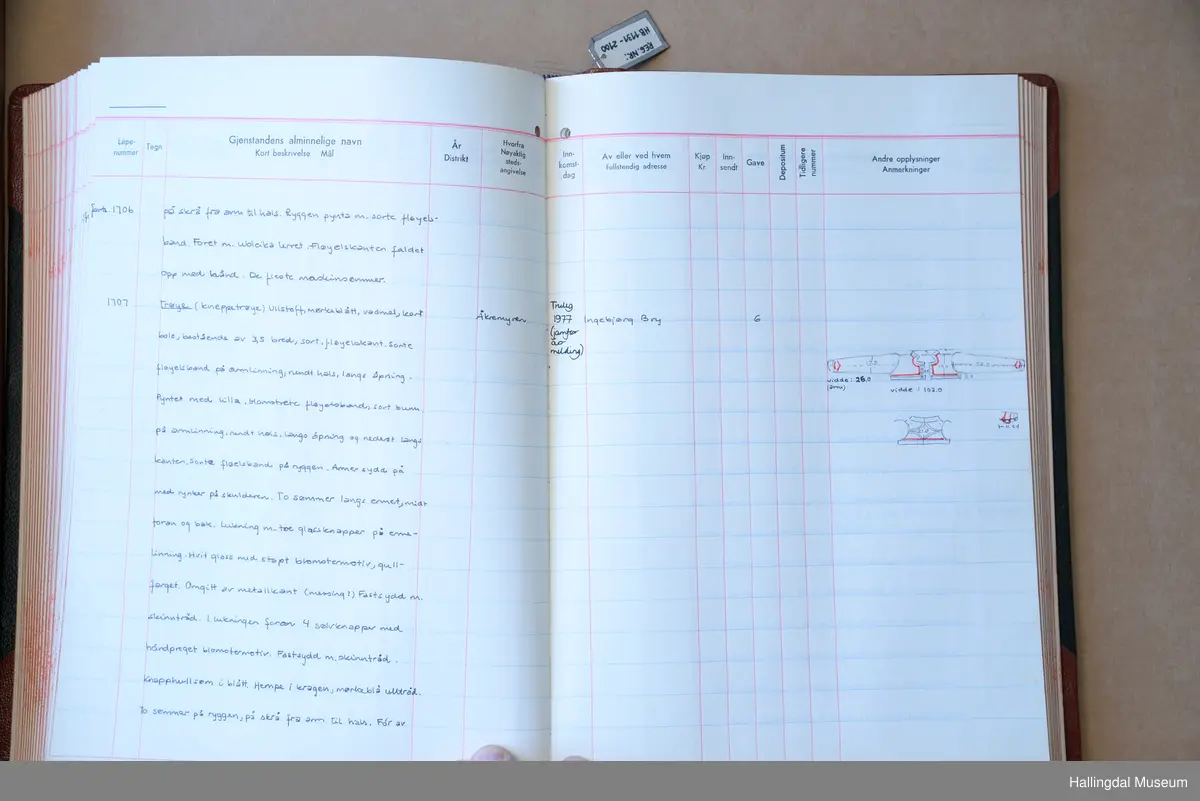 REG.NR:
HB 1131 - 2100
Løpe-
nummer
Tegn
Gjenstandens alminnelige navn
Kort beskrivelse Mål
År
Distrikt
Hvorfra
Nøyaktig
steds-
angivelse
Inn-
komst-
dag
Av eller ved hvem
Fullstendig adresse
Kjøp
Kr
Inn-
sendt
Gave
Depositum
Tidligere
nummer
Andre opplysninger
Anmerkninger
forts. 1706
på skrå fra arm til hals. Ryggen pynta m. sorte fløyels-
band. Foret m. ubleika lerret. Fløyelskanten faldet
opp med hånd. De fleste maskinsømmer.
1707
Trøye (kneppetrøye) Ullstoff, mørkeblått, vadmel, kort
Åkremyren
Trulig
1977
(jamfør
års
melding)
Ingebjørg Bry
6
bole, bestående av 3,5 bred, sort, fløyelskant. Sorte
fløyelsband på armlinning, rundt hals, langs åpning.
Pyntet med lilla, blomstrete fløyelsband, sort bunn
på armlinning, rundt hals, langs åpning og nederst langs
kanten. Sorte fløelsband på ryggen. Armer sydd på
med rynker på skulderen. To sømmer langs ermet, midt
foran og bak. Lukning m. toe glassknapper på erme-
linning. Hvit glass med støpt blomstermotiv, gull-
farget. Omgitt av metallkant (messing!) Fastsydd m.
skinntråd. I lukningen foran 4 sølvknapper med
håndpreget blomstermotiv. Fastsydd m. skinntråd.
Knapphullsøm i blått. Hempe i kragen, mørkeblå ulltråd.
To sømmer på ryggen, på skrå fra arm til hals. Fôr av
vidde: 28.0
(arm)
vidde: 102.0
Hallingdal Museum